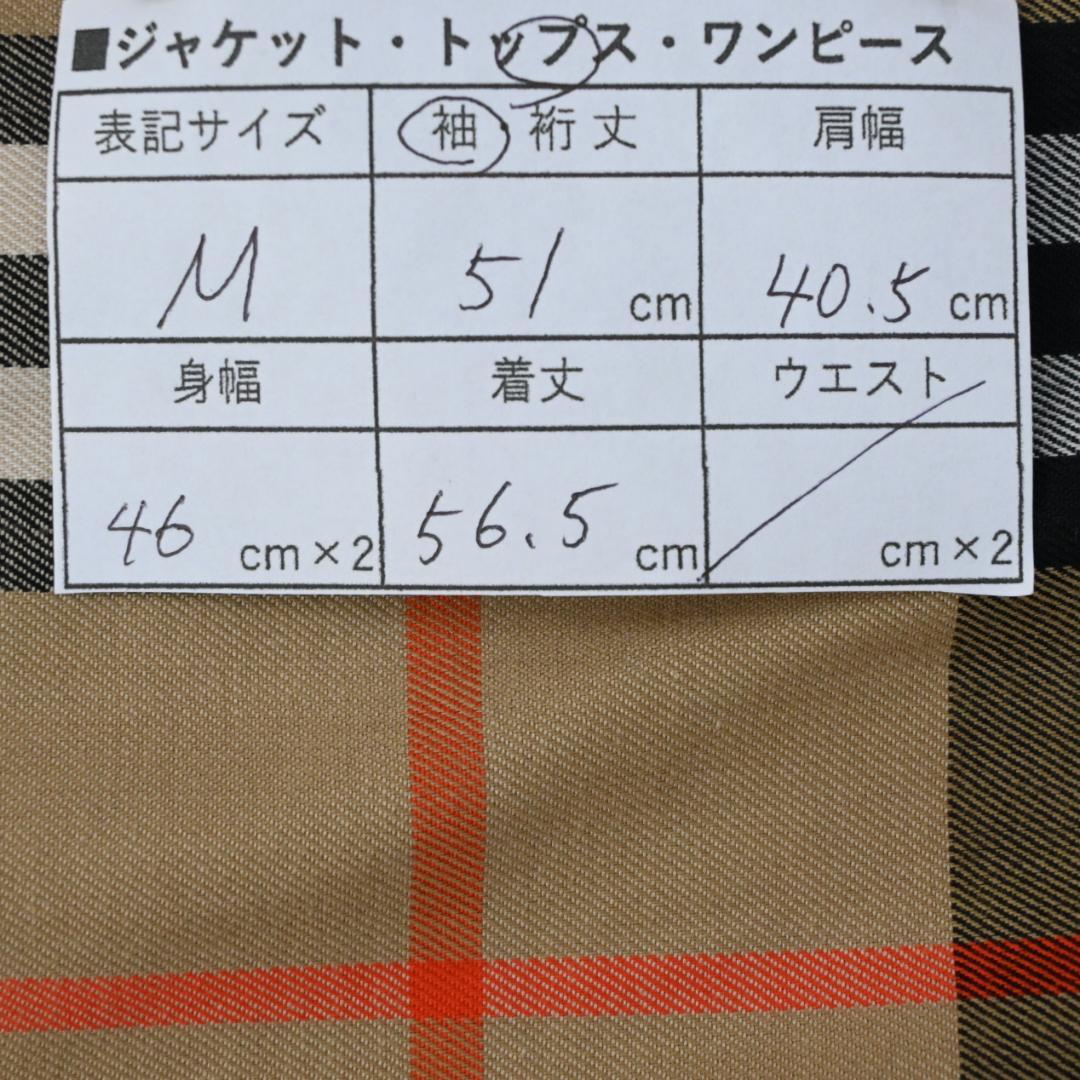 ■ジャケット・トップス・ワンピース
表記サイズ 袖 裄 丈 肩幅
M 51 cm 40.5 cm
身幅 着丈 ウエスト
46 cm×2 56.5 cm cm×2